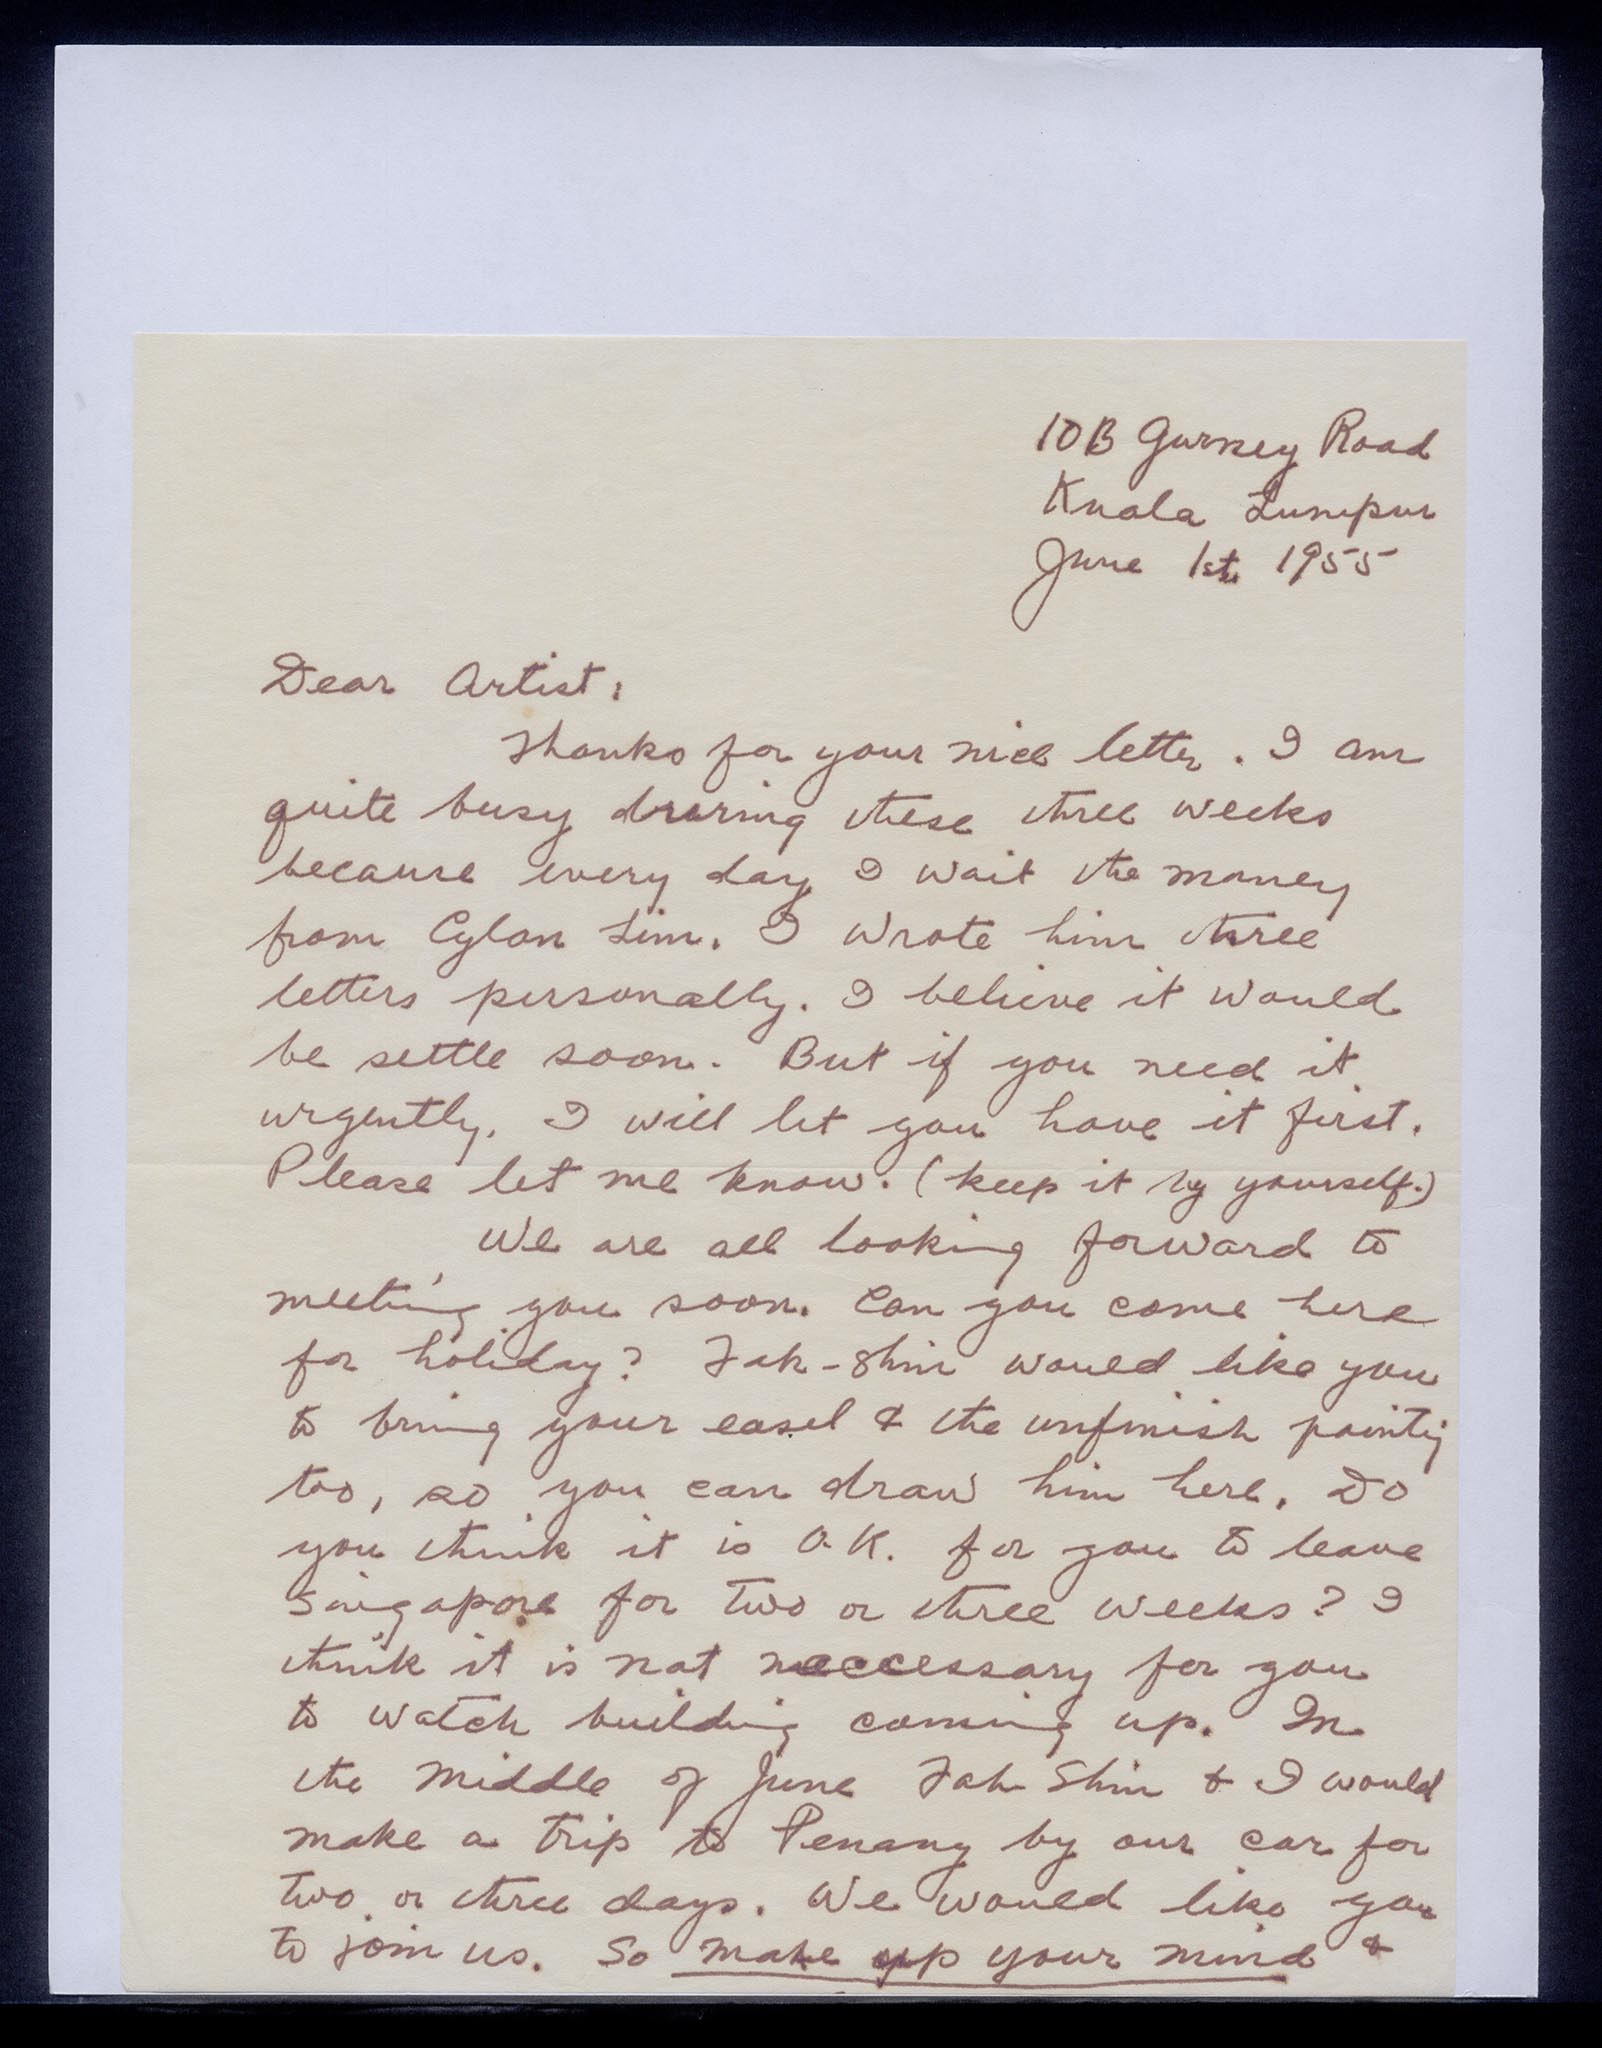 10B Gurney Road
Kuala Lumpur
June 1st 1955
Dear Artist:
Thanks for your nice letter. I am
quite busy druring these three weeks
because every day I wait the money
from Cylon Lim. I wrote him three
letters personally. I believe it would
be settle soon. But if you need it
urgently, I will let you have it first.
Please let me know. (keep it by yourself.)
We are all looking forward to
meeting you soon. Can you come here
for holiday? Fah-Shin would like you
to bring your easel & the unfinish painting
too, so you can draw him here. Do
you think it is O.K. for you to leave
Singapore for two or three weeks? I
think it is not neccessary for you
to watch building coming up. In
the middle of June Fah Shin & I would
make a trip to Penang by our car for
two or three days. We would like you
to join us. So make up your mind &